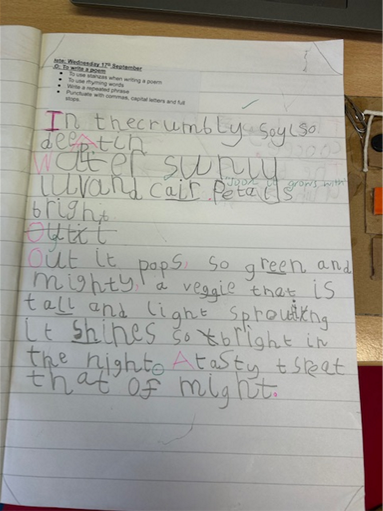 Date: Wednesday 17th September
LO: To write a poem
To use stanzas when writing a poem
To use rhyming words
Write a repeated phrase
Punctuate with commas, capital letters and full
stops.
In thecrumbly soyl so
deeptin
Water suniy
luvand cair. Petalls
bright
Outit
Out it pops, so green and
mighty, a veggie that is
tall and light sprouting
it shines so bright in
the night. A tasty treat
that of might.